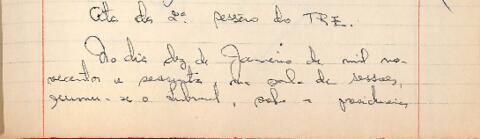 Ata da 2ª sessão do TRE.
No dia dez de Janeiro de mil no-
vecentos e sessenta, na sala de sessões,
reuniu-se o tribunal, sob a presidencia